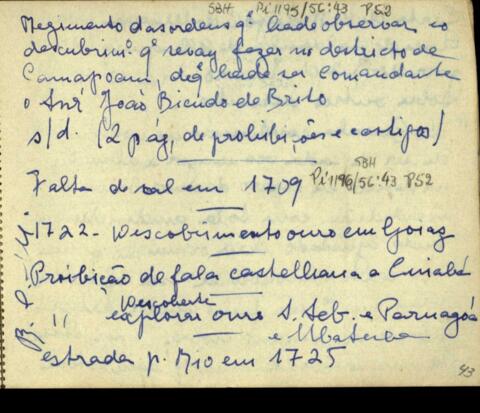 SBH Pi 1195/56:43 P52
Regimento das ordens q. hade observar no
descubrim.o q. se vay fazer no destricto de
Camapoam, de q. hade ser Comandante
o Snr João Bicudo de Brito
s/d. (2 pág, de prohibições e castigos)
SBH
Falta de sal em 1709 Pi 1196/56:43 P52
1722 - Descobrimento ouro em Goiaz
Proibição de fala castelhana a Cuiabá
Descoberta
" explorar ouro S. Seb. e Parnagoá
e Ubatuba
estrada p. Rio em 1725
43